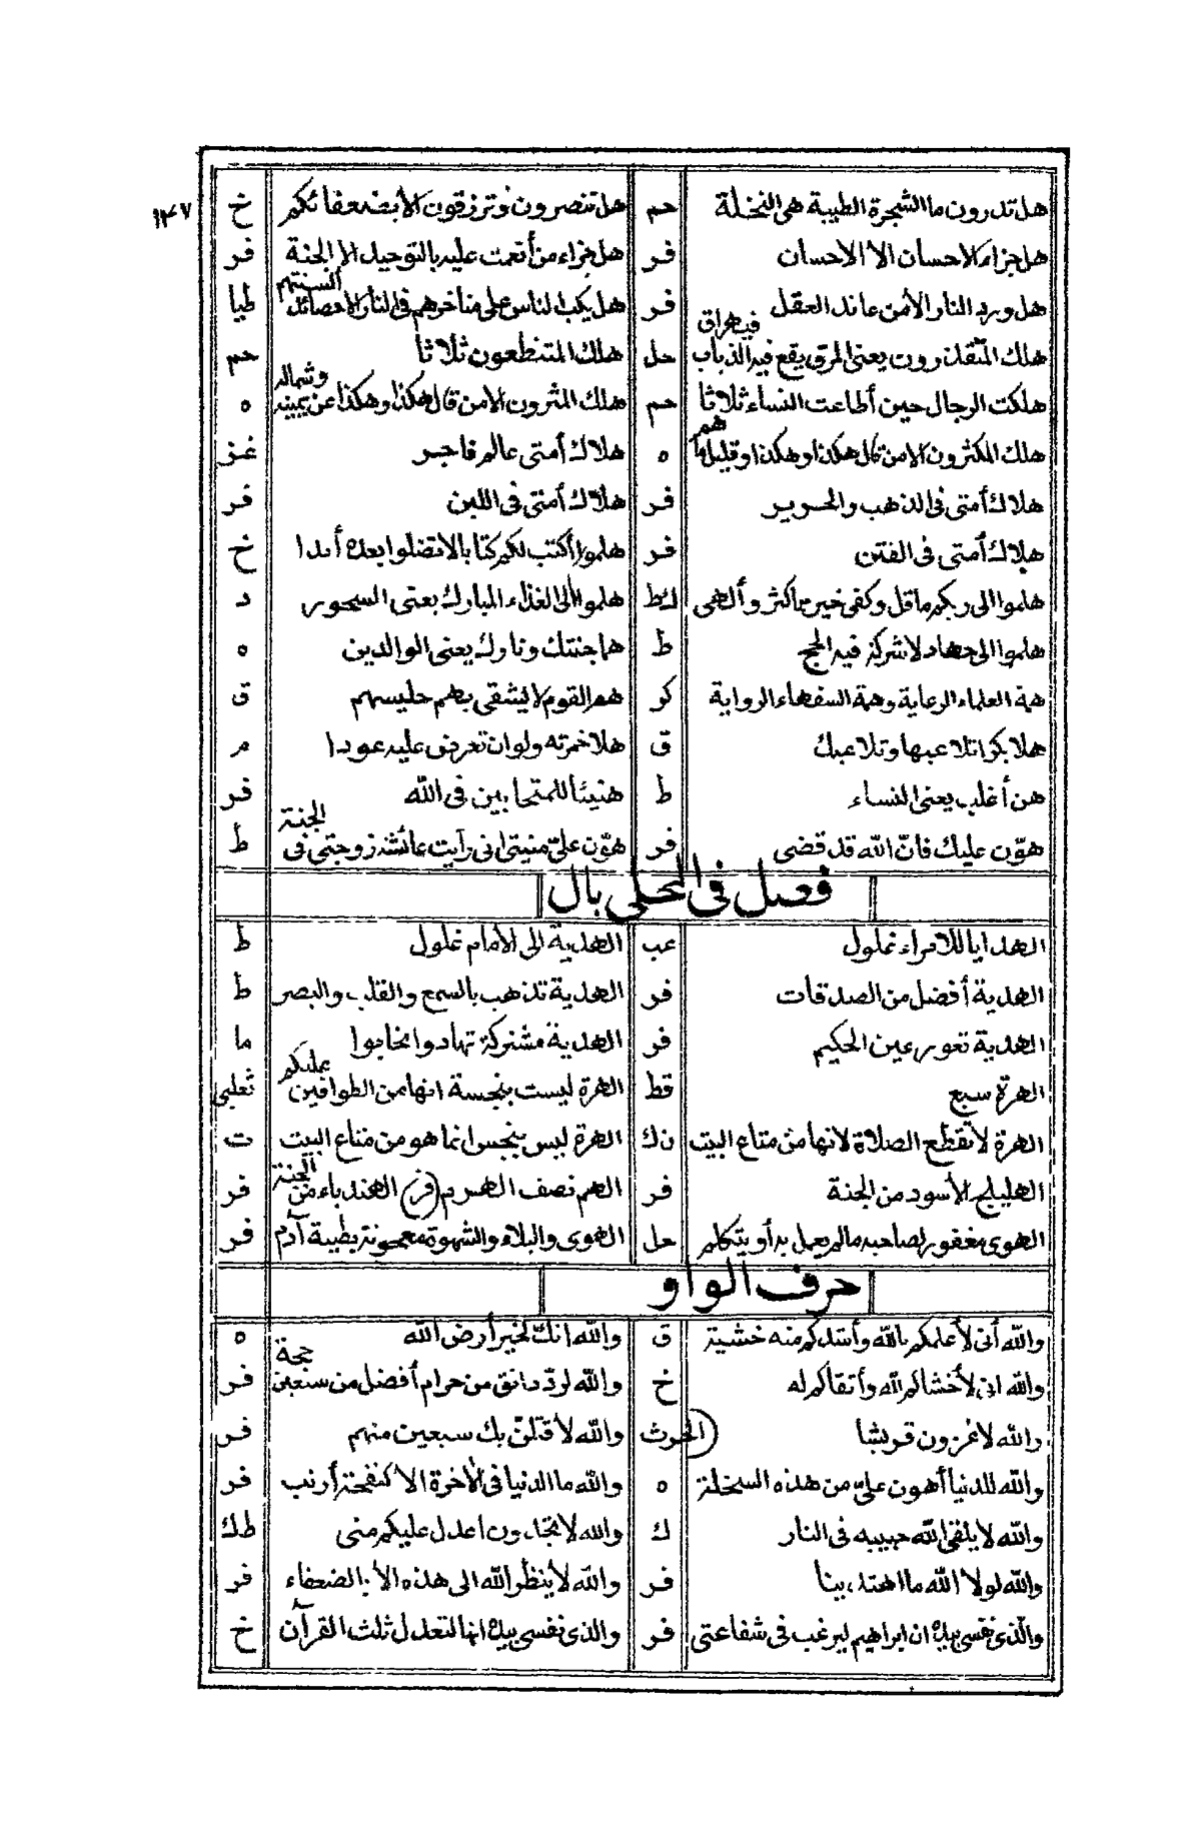 ١٤٧
هل تدرون ما الشجرة الطيبة هى النخلة حم هل تنصرون وترزقون الا بضعفائكم خ
هل جزاء الاحسان الا الاحسان فر هل جزاء من أنعمت عليه بالتوحيد الا الجنة فر
هل ورد النار الا من عاند العقل فر هل يكب الناس على مناخرهم فى النار الا حصائد ألسنتهم طيا
هلك المتقذرون يعنى المرق يقع فيه الذباب فيهراق حل هلك المتنطعون ثلاثا حم
هلكت الرجال حين أطاعت النساء ثلاثا حم هلك المثرون الا من قال هكذا وهكذا عن يمينه وشماله ه
هلك المكثرون الا من قال هكذا وهكذا وقليل ما هم ه هلاك أمتى عالم فاجر غز
هلاك أمتى فى الذهب والحرير فر هلاك أمتى فى اللبن فر
هلاك أمتى فى الفتن فر هلموا أكتب لكم كتابا لا تضلوا بعده أبدا خ
هلموا الى ربكم ما قل وكفى خير مما كثر وألهى كط هلموا الى الغذاء المبارك يعنى السحور د
هلموا الى جهاد لا شركة فيه الحج ط هما جنتك ونارك يعنى الوالدين ه
همة العلماء الرعاية وهمة السفهاء الرواية كر هم القوم لا يشقى بهم جليسهم ق
هلا بكرا تلاعبها وتلاعبك ق هلا خمرته ولو ان تعرض عليه عودا م
هن أغلب يعنى النساء ط هنيئا للمتحابين فى الله فر
هوّن عليك فانّ الله قد قضى فر هوّن علىّ منيتى انى رأيت عائشة زوجتى فى الجنة ط
فصل فى المحلى بال
الهدايا للامراء غلول عب الهدية الى الامام غلول ط
الهدية أفضل من الصدقات فر الهدية تذهب بالسمع والقلب والبصر ط
الهدية تعور عين الحكيم فر الهدية مشتركة تهادوا تحابوا ما
الهرة سبع قط الهرة ليست بنجسة انها من الطوافين عليكم ثعلبى
الهرة لا تقطع الصلاة لانها من متاع البيت ن ك الهرة ليس بنجس انما هو من متاع البيت ت
الهليلج الأسود من الجنة فر الهم نصف الهرم (فر) الهندباء من الجنة فر
الهوى مغفور لصاحبه ما لم يعمل به أو يتكلم حل الهوى والبلاء والشهوة معجونة بطينة آدم فر
حرف الواو
والله أنى لأعلمكم بالله وأشدكم منه خشية ق والله انك لخير أرض الله ه
والله انى لأخشاكم لله وأتقاكم له خ والله لردّ دانق من حرام أفضل من سبعين حجة فر
والله لأغزون قريشا (الحرث والله لأقتلنّ بك سبعين منهم فر
والله للدنيا أهون علىّ من هذه السخلة ه والله ما الدنيا فى الآخرة الا كنفجة أرنب فر
والله لا يلقى الله حبيبه فى النار ك والله لا تجدون اعدل عليكم منى طك
والله لولا الله ما اهتدينا فر والله لا ينظر الله الى هذه الا بالضعفاء فر
والذى نفسى بيده ان ابراهيم ليرغب فى شفاعتى فر والذى نفسى بيده انها لتعدل ثلث القرآن خ